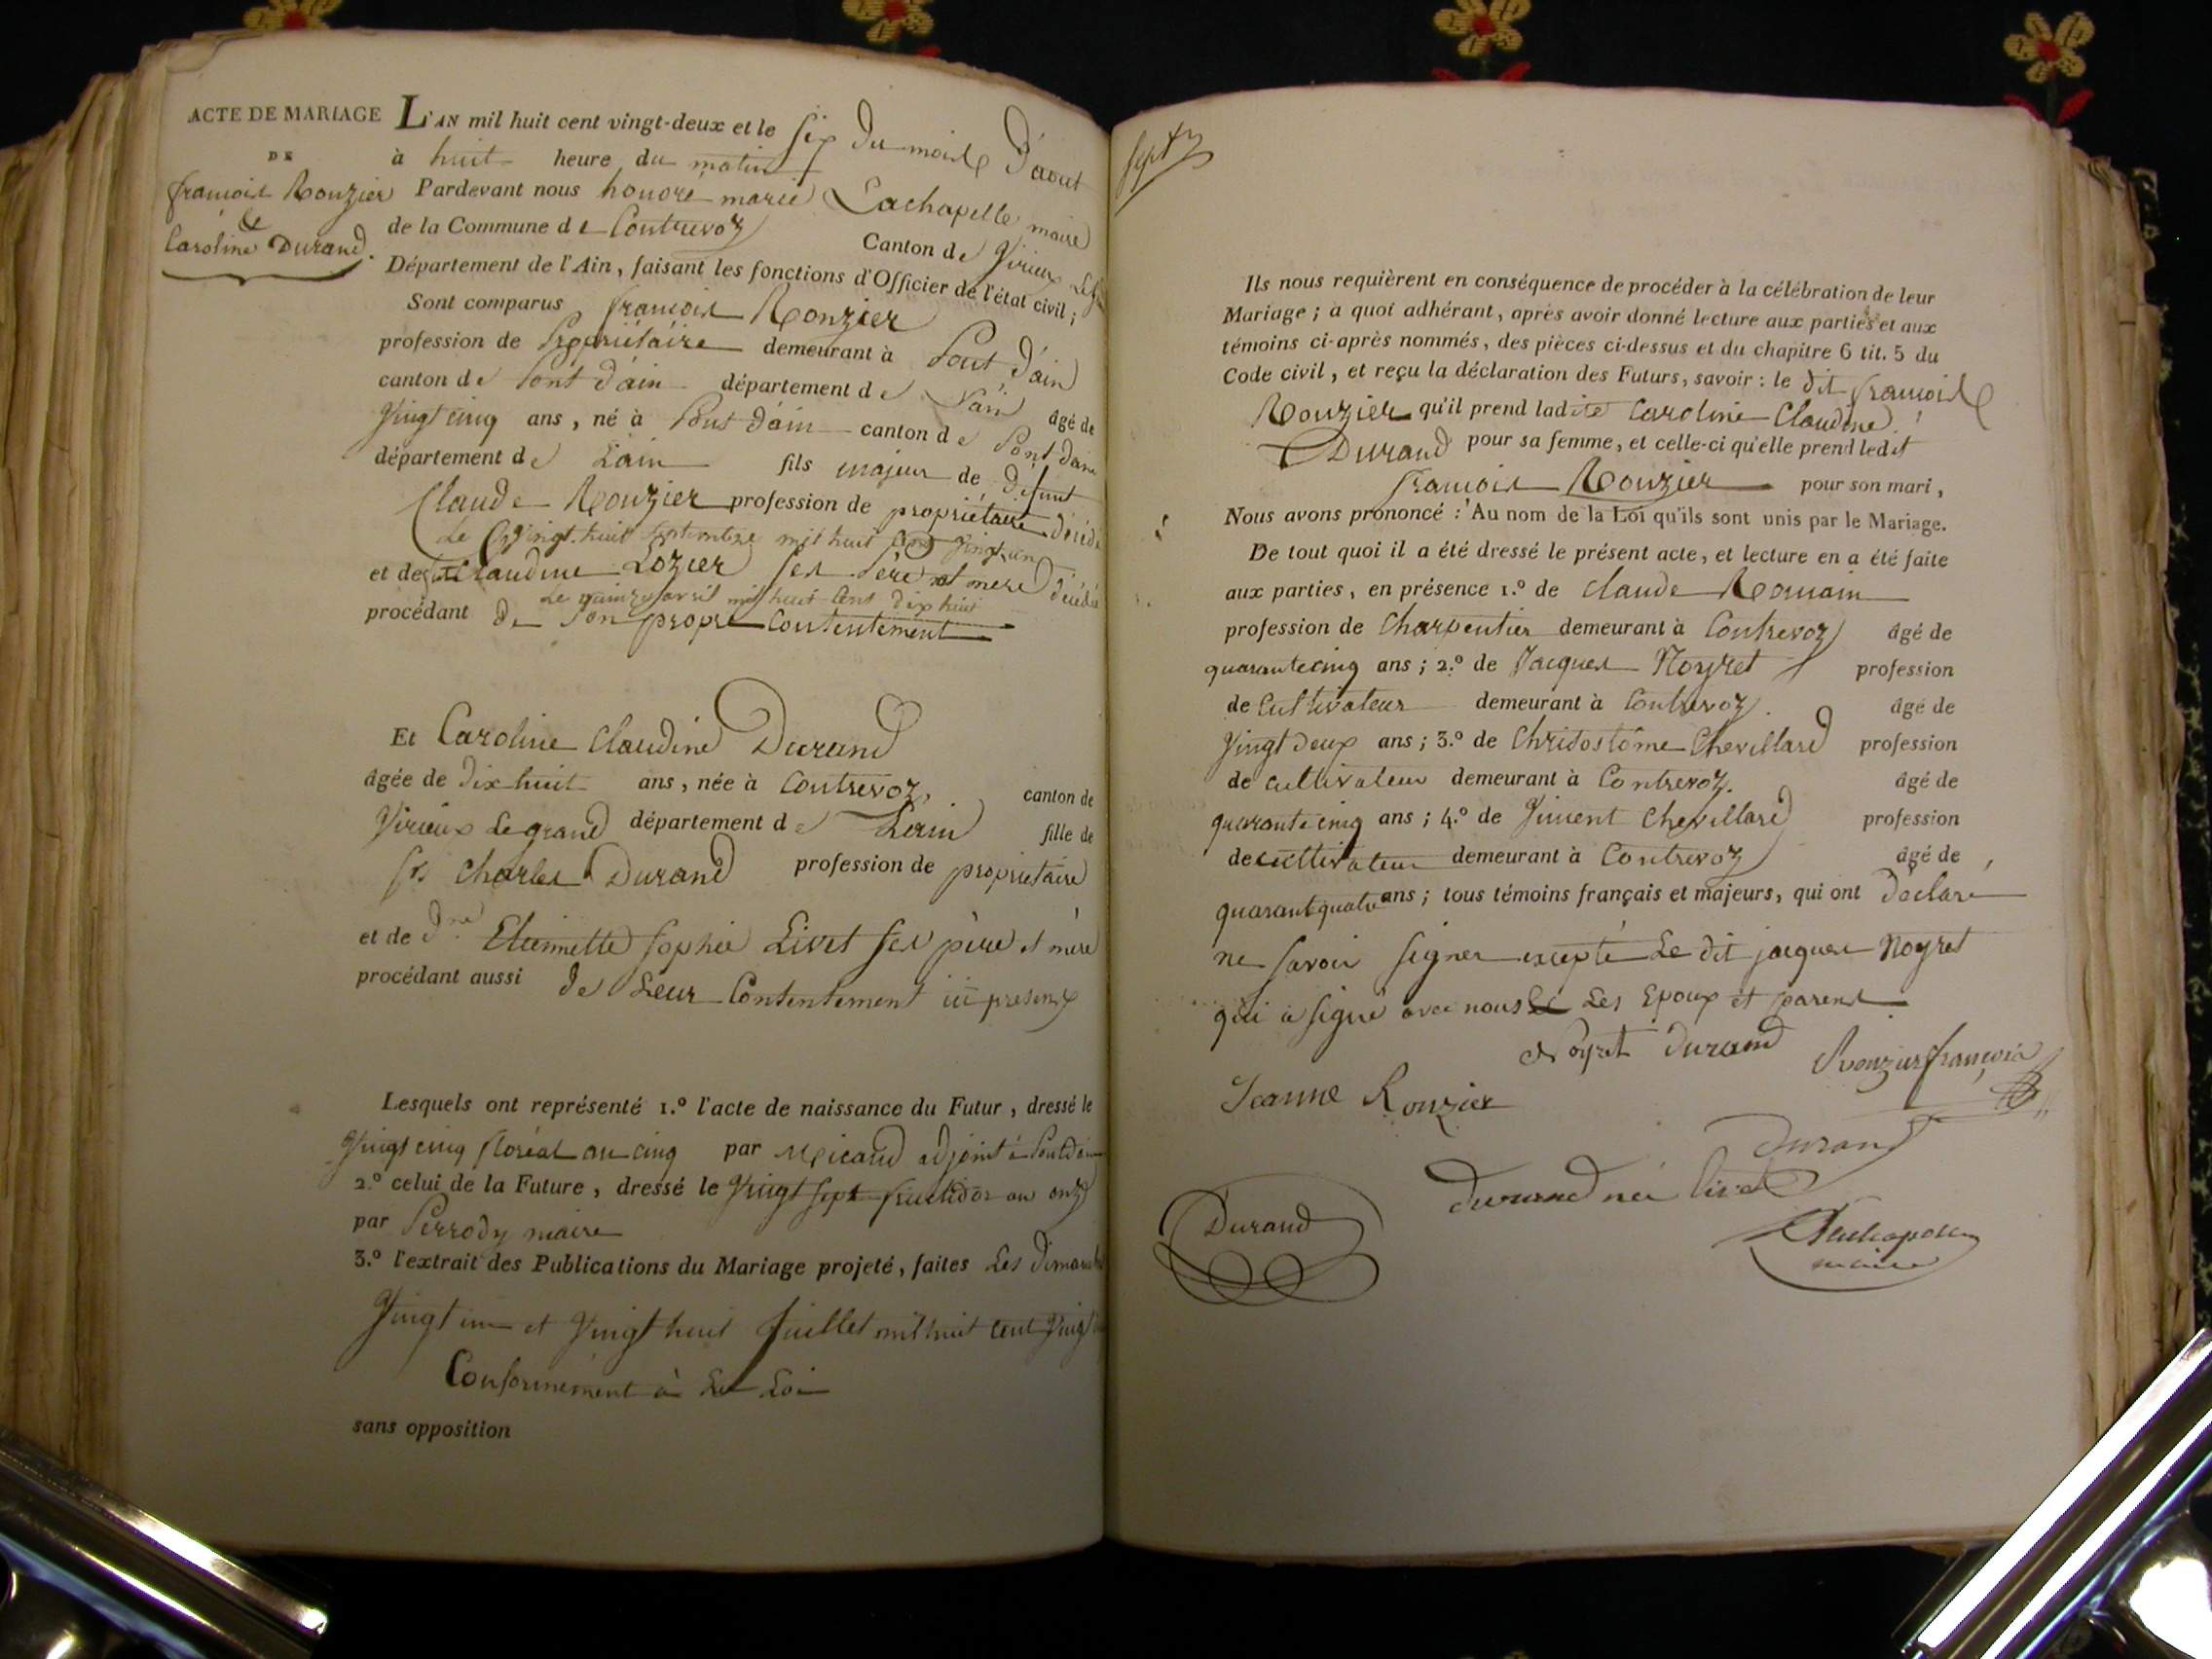 ACTE DE MARIAGE
DE
françois Ronzier
&
Caroline Durand.
L'AN mil huit cent vingt-deux et le six du mois d'aout
à huit heure du matin
Pardevant nous honoré marie Lachapelle maire
de la Commune de Contrevoz Canton de Virieux Le
Département de l'Ain, faisant les fonctions d'Officier de l'état civil;
Sont comparus françois Ronzier
profession de Propriétaire demeurant à Pont d'ain
canton de Pont d'ain département de l'ain âgé de
Vingt cinq ans, né à Pont d'ain canton de Pont d'ain
département de Lain fils majeur de défunt
Claude Ronzier profession de propriétaire décédé
Le Vingt huit septembre mil huit cent Vingt un
et de Claudine Lozier ses père et mere décédée
Le quinze avril mil huit cent dix huit
procédant de son propre Contentement
Et Caroline Claudine Durand
âgée de dix huit ans, née à Contrevoz, canton de
Virieux Le grand département de Lain fille de
sr Charles Durand profession de propriétaire
et de dme Etiennette Sophie Livet ses père et mère
procédant aussi de Leur Contentement ici présens
Lesquels ont représenté 1.º l'acte de naissance du Futur, dressé le
Vingt cinq floréal an cinq par Micaud adjoint à Pontdain
2.º celui de la Future, dressé le Vingt sept fructidor an onze
par Perrody maire
3.º l'extrait des Publications du Mariage projeté, faites Les dimanches
Vingt un et Vingt huit Juillet mil huit cent Vingt
Conformément à La Loi
sans opposition
Ils nous requièrent en conséquence de procéder à la célébration de leur
Mariage; à quoi adhérant, après avoir donné lecture aux parties et aux
témoins ci-après nommés, des pièces ci-dessus et du chapitre 6 tit. 5 du
Code civil, et reçu la déclaration des Futurs, savoir: le dit françois
Ronzier qu'il prend ladite Caroline Claudine
Durand pour sa femme, et celle-ci qu'elle prend ledit
françois Ronzier pour son mari,
Nous avons prononcé: Au nom de la Loi qu'ils sont unis par le Mariage.
De tout quoi il a été dressé le présent acte, et lecture en a été faite
aux parties, en présence 1.º de Claude Romain
profession de Charpentier demeurant à Contrevoz âgé de
quarante cinq ans; 2.º de Jacques Noyret profession
de Cultivateur demeurant à Contrevoz. âgé de
Vingt deux ans; 3.º de Christostôme Chevillard profession
de cultivateur demeurant à Contrevoz. âgé de
quarante cinq ans; 4.º de Vincent Chevillard profession
de cultivateur demeurant à Contrevoz âgé de
quarante quatre ans; tous témoins français et majeurs, qui ont déclaré
ne savoir signer excepté Le dit jacques Noyret
qui a signé avec nous Les Epoux et parens
Noyret Durand Ronzier françois
Jeanne Ronzier
Durand
Durand née Livet
Durand
Lachapelle
maire